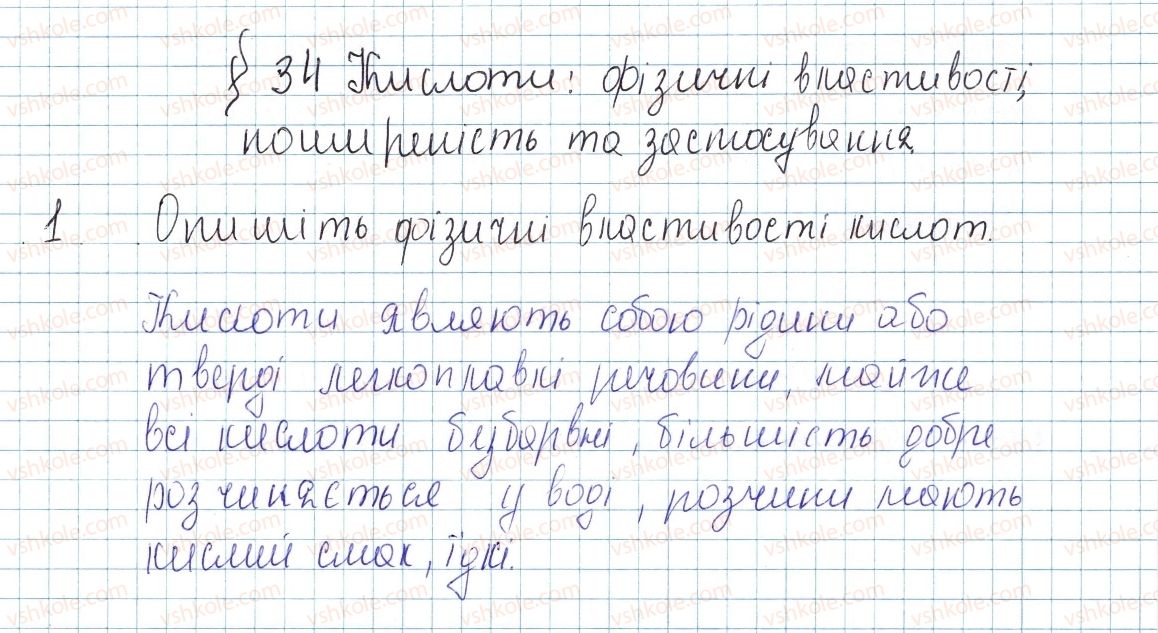 § 34 Кислоти: фізичні властивості,
поширеність та застосування
1 Опишіть фізичні властивості кислот.
Кислоти являють собою рідини або
тверді легкоплавкі речовини, майже
всі кислоти бузбарвні, більшість добре
розчиняється у воді, розчини мають
кислий смак, їдкі.